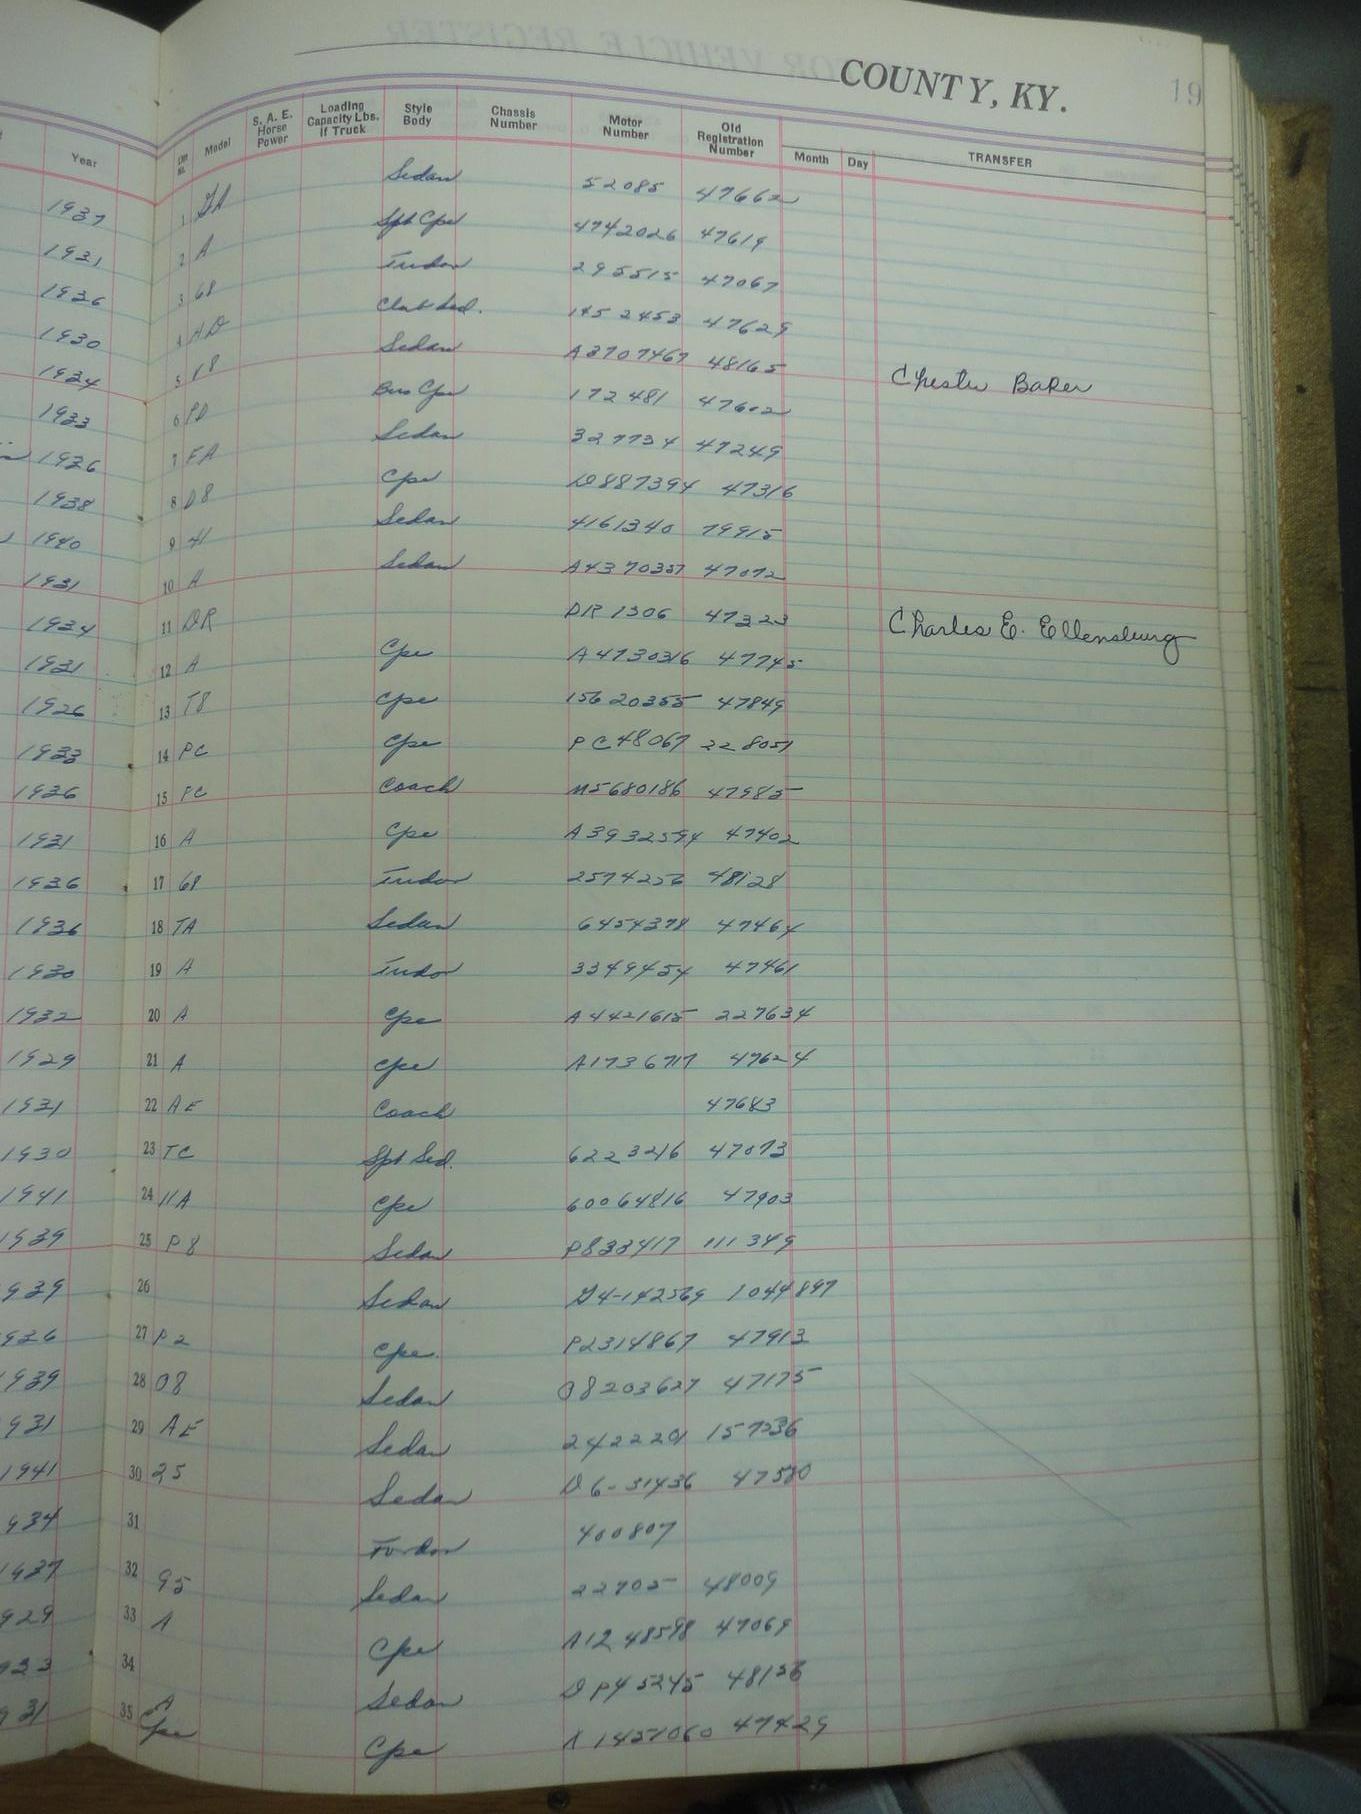 COUNTY, KY.
19
Year Line No. Model S. A. E. Horse Power Loading Capacity Lbs. If Truck Style Body Chassis Number Motor Number Old Registration Number Month Day TRANSFER
1937 1 GA Sedan 52085 47662
1931 2 A Spt Cpe 4742026 47619
1936 3 68 Tudor 295515 47067
1930 4 AD Club Sed. 1452453 47629
1934 5 V8 Sedan A3707467 48165 Chester Baker
1933 6 PD Bus Cpe 172481 47602
1936 7 FA Sedan 327734 47249
1938 8 D8 Cpe D887394 47316
1940 9 41 Sedan 4161340 79915
1931 10 A Sedan A4370337 47072
1934 11 DR DR 1306 47323 Charles E. Ellensburg
1931 12 A Cpe A4730316 47745
1926 13 T8 Cpe 15620355 47849
1933 14 PC Cpe PC48067 228051
1936 15 FC Coach M5680186 47985
1931 16 A Cpe A3932594 47402
1936 17 68 Tudor 2574256 48128
1936 18 TA Sedan 6454378 47464
1930 19 A Tudor 3349454 47461
1932 20 A Cpe A4421615 227634
1929 21 A Cpe A1736717 47624
1931 22 AE Coach 47683
1930 23 TC Spt Sed. 6223216 47073
1941 24 11A Cpe 60064816 47903
1939 25 P8 Sedan P833417 111349
939 26 Sedan G4-142569 1044897
936 27 P2 Cpe. P2314867 47913
939 28 08 Sedan 08203627 47175
931 29 AE Sedan 2422201 157236
1941 30 25 Sedan D6-31436 47580
934 31 Fordor 400807
1937 32 95 Sedan 22705 48009
929 33 A Cpe A1248598 47069
933 34 Sedan DP45245 48136
931 35 A Cpe Cpe A1457060 47429